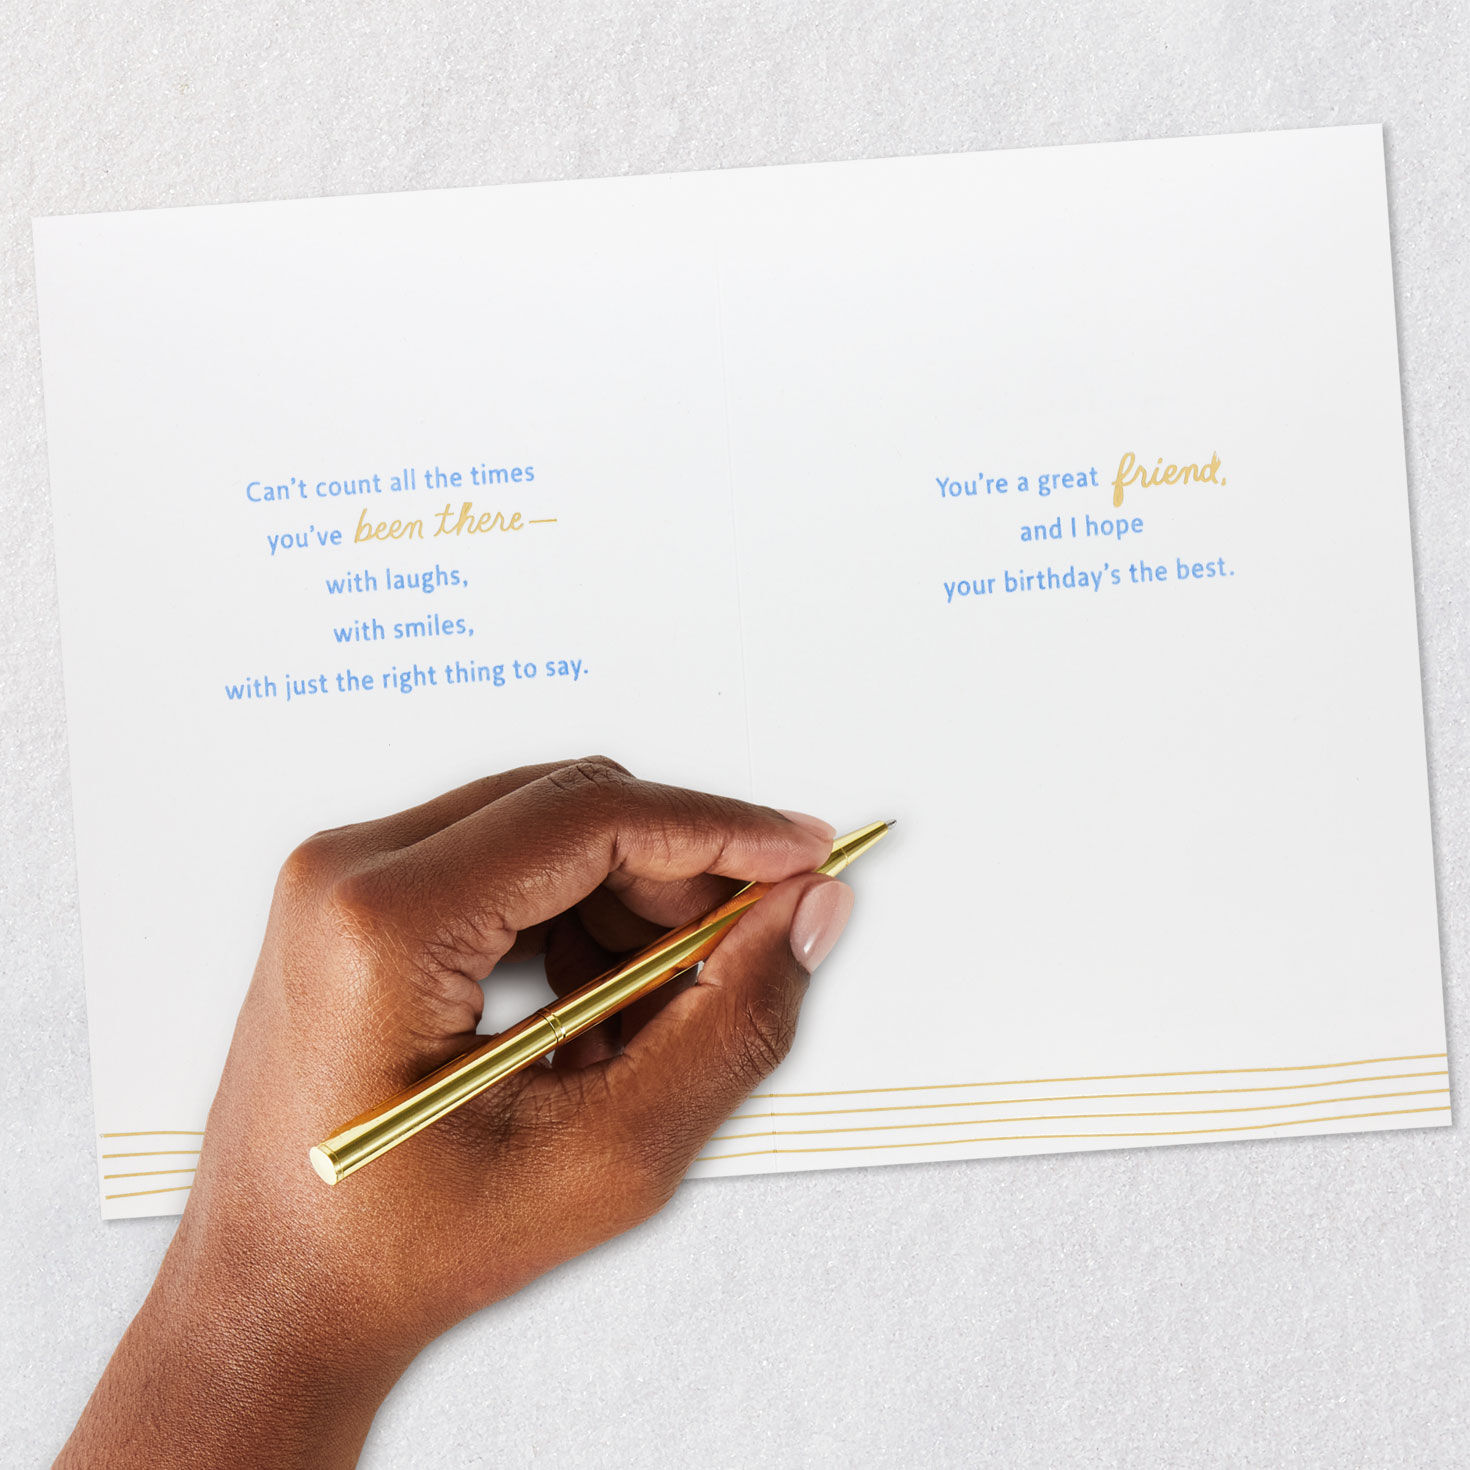 Can't count all the times
you've been there—
with laughs,
with smiles,
with just the right thing to say.
You're a great friend,
and I hope
your birthday's the best.